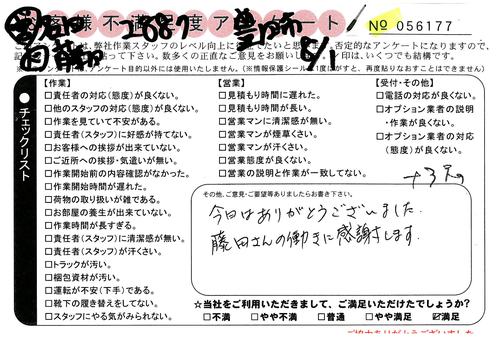 お客様不満足度アンケート
№ 056177
2887
8/1
チェックリスト
【作業】
□責任者の対応(態度)が良くない。
□他のスタッフの対応(態度)が良くない。
□作業を見ていて不安がある。
□責任者(スタッフ)に好感が持てない。
□お客様への挨拶が出来ていない。
□ご近所への挨拶・気遣いが無い。
□作業開始前の内容確認がなかった。
□作業開始時間が遅れた。
□荷物の取り扱いが雑である。
□お部屋の養生が出来ていない。
□作業時間が長すぎる。
□責任者(スタッフ)に清潔感が無い。
□責任者(スタッフ)が汗くさい。
□トラックが汚い。
□梱包資材が汚い。
□運転が不安(下手)である。
□靴下の履き替えをしてない。
□スタッフにやる気がみられない。
【営業】
□見積もり時間に遅れた。
□見積もり時間が長い。
□営業マンに清潔感が無い。
□営業マンが煙草くさい。
□営業マンが汗くさい。
□営業態度が良くない。
□営業の説明と作業が一致してない。
【受付・その他】
□電話の対応が良くない。
□オプション業者の説明
・作業が良くない。
□オプション業者の対応
(態度)が良くない。
その他、ご意見・ご要望等ありましたらお書き下さい。
今日はありがとうございました。
藤田さんの働きに感謝します。
☆当社をご利用いただきまして、ご満足いただけたでしょうか?
□不満 □やや不満 □普通 □やや満足 ☑満足
ご協力ありがとうございました